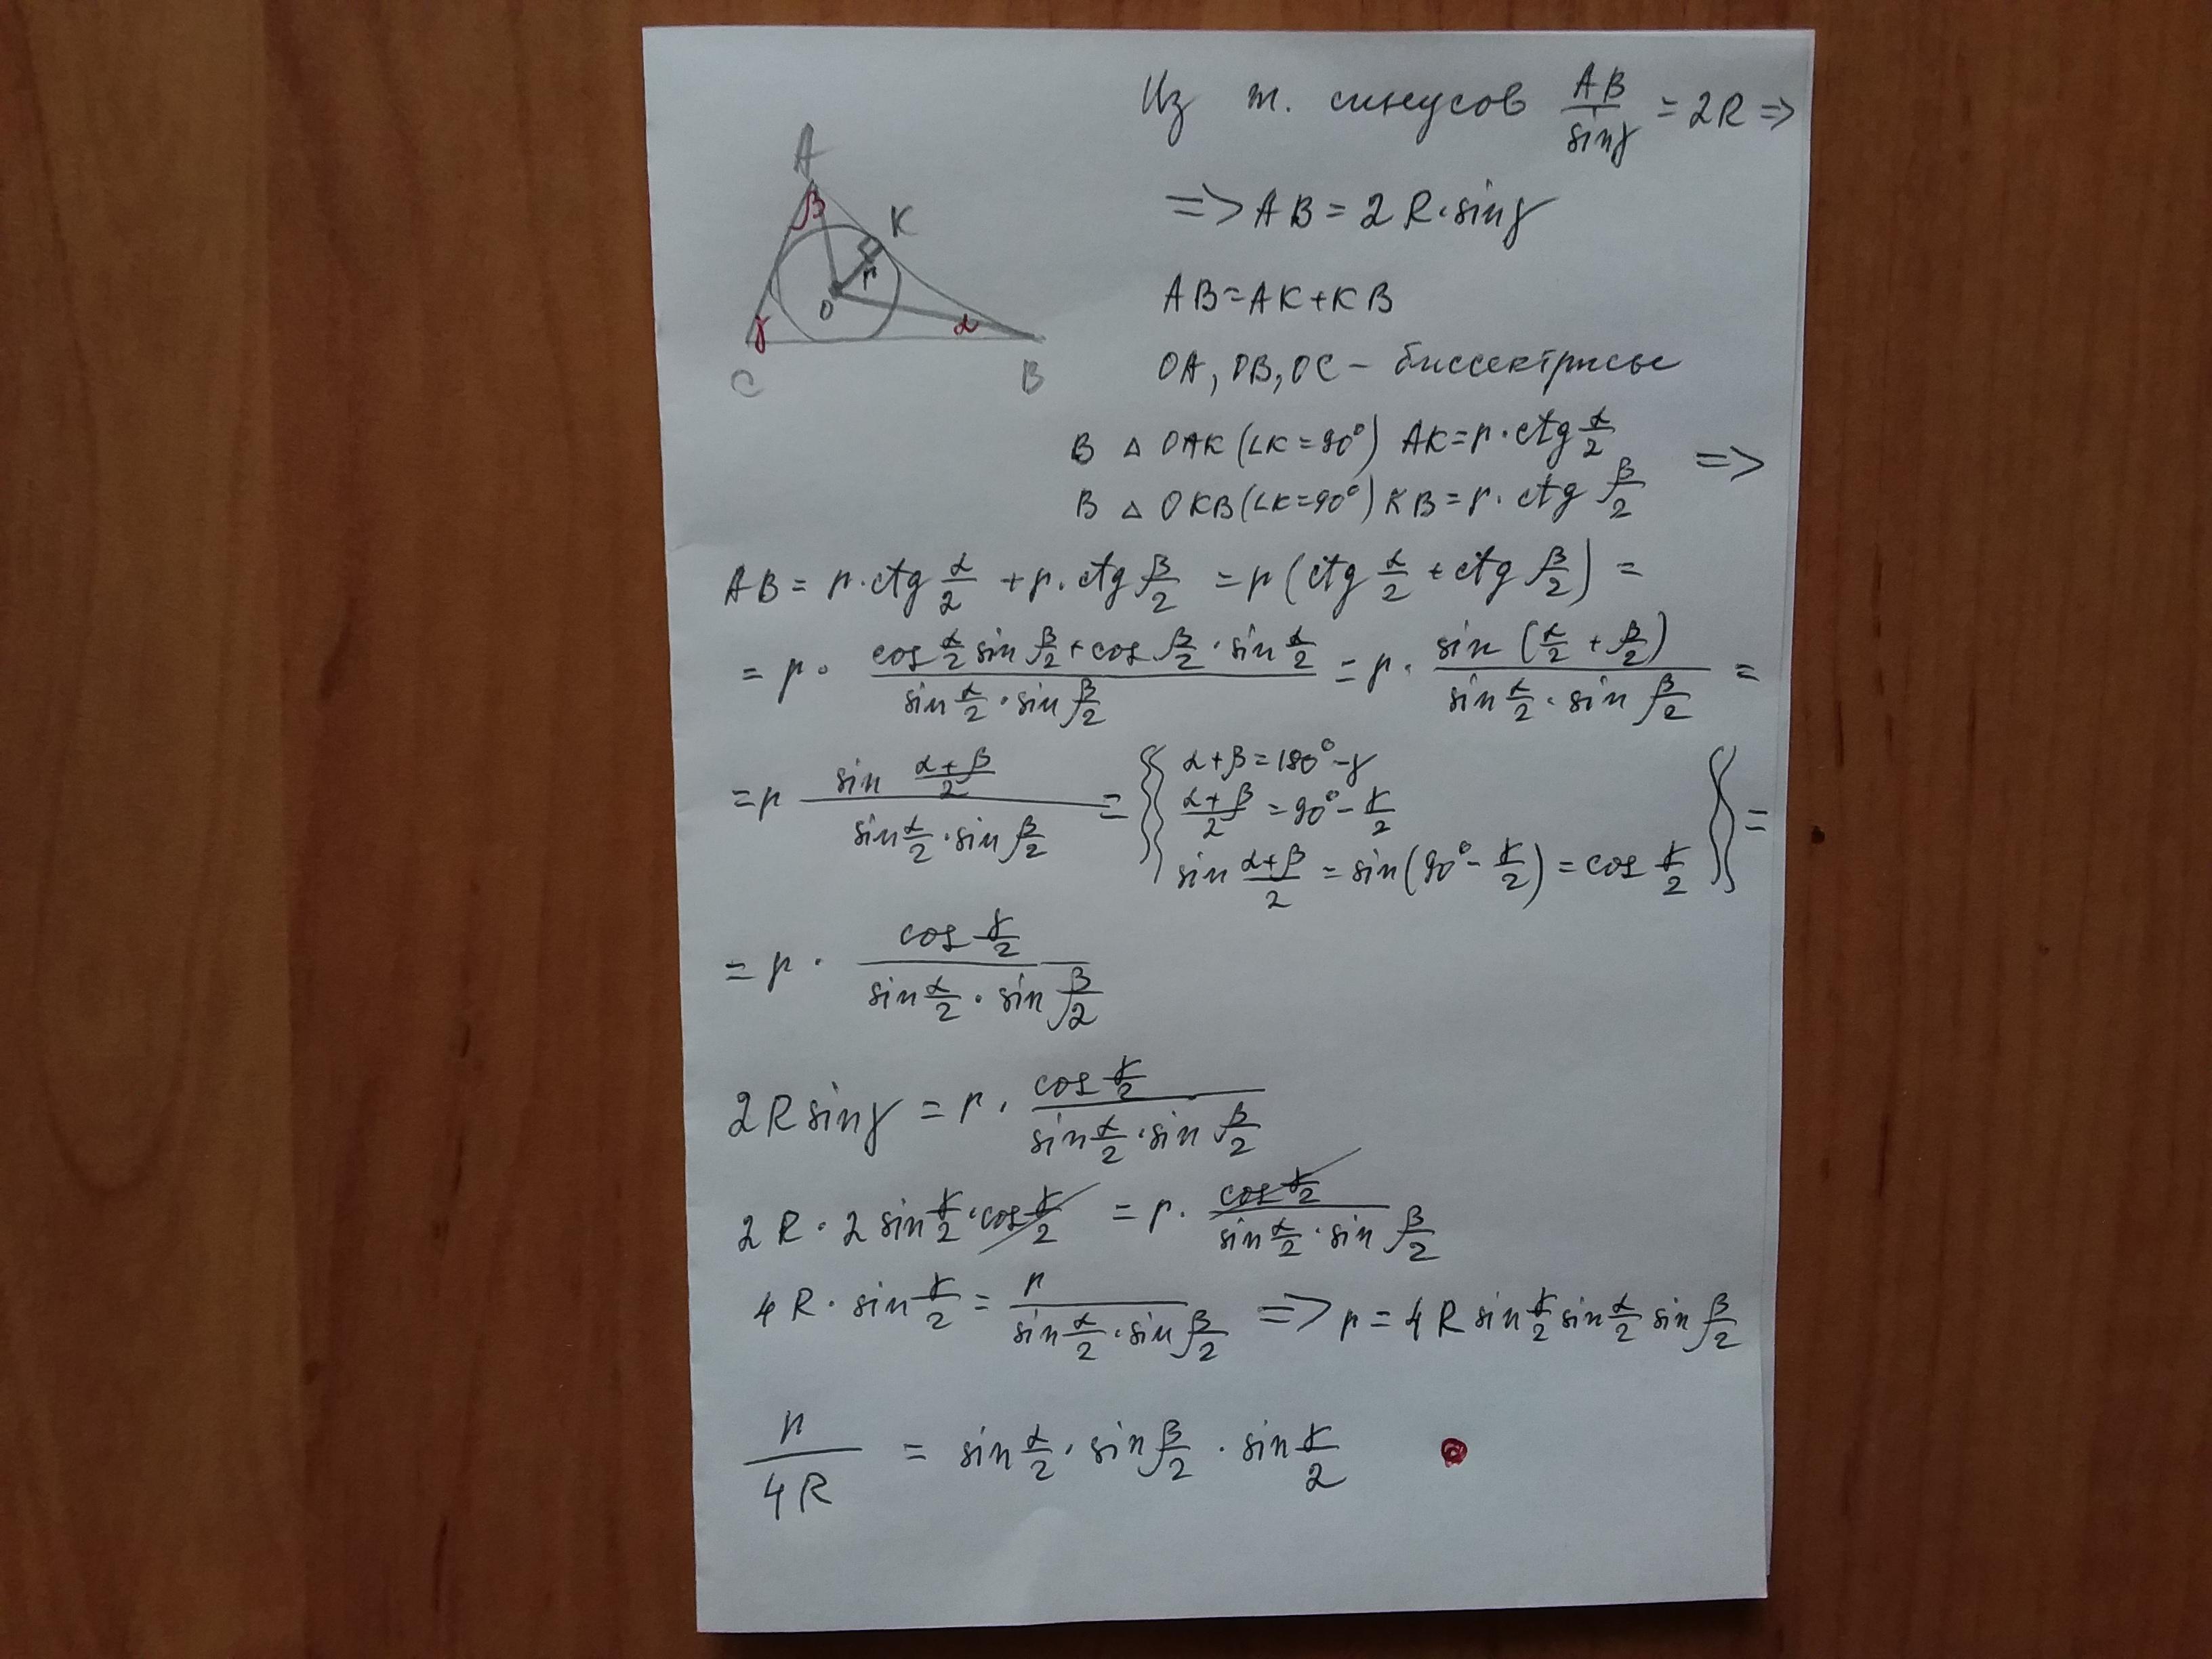 Из т. синусов AB/sinγ = 2R =>
=> AB = 2R·sinγ
A
β
K
r
O
γ
α
C
B
AB=AK+KB
OA, OB, OC – биссектрисы
В △ OAK (∠K=90°) AK=r·ctg α/2
=>
В △ OKB (∠K=90°) KB=r·ctg β/2
AB = r·ctg α/2 + r·ctg β/2 = r(ctg α/2 + ctg β/2) =
= r · (cos α/2 sin β/2 + cos β/2 · sin α/2)/(sin α/2 · sin β/2) = r · sin(α/2 + β/2)/(sin α/2 · sin β/2) =
= r sin (α+β)/2 / (sin α/2 · sin β/2) = {
α+β=180°-γ
(α+β)/2 = 90° - γ/2
sin (α+β)/2 = sin(90° - γ/2) = cos γ/2 } =
= r · cos γ/2 / (sin α/2 · sin β/2)
2R sinγ = r · cos γ/2 / (sin α/2 · sin β/2)
2R · 2 sin γ/2 · cos γ/2 = r · cos γ/2 / (sin α/2 · sin β/2)
4R · sin γ/2 = r / (sin α/2 · sin β/2) => r = 4R sin γ/2 sin α/2 sin β/2
r/4R = sin α/2 · sin β/2 · sin γ/2